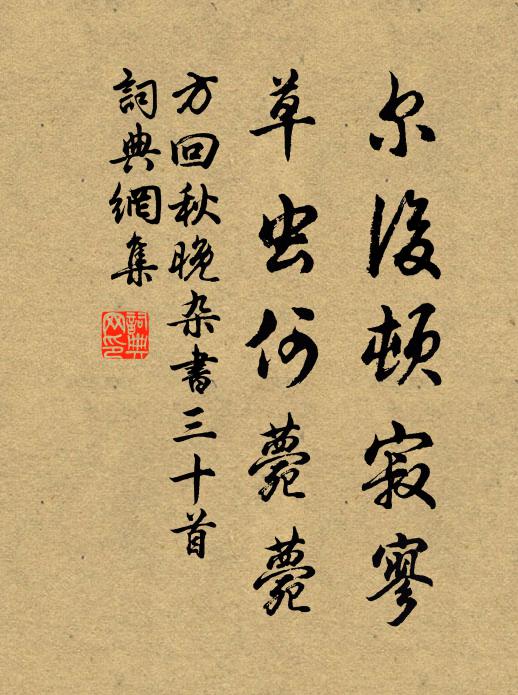 尔後頓寂寥
草虫何薨薨
方回秋晚杂書三十首
詞典網集
詞典
网印